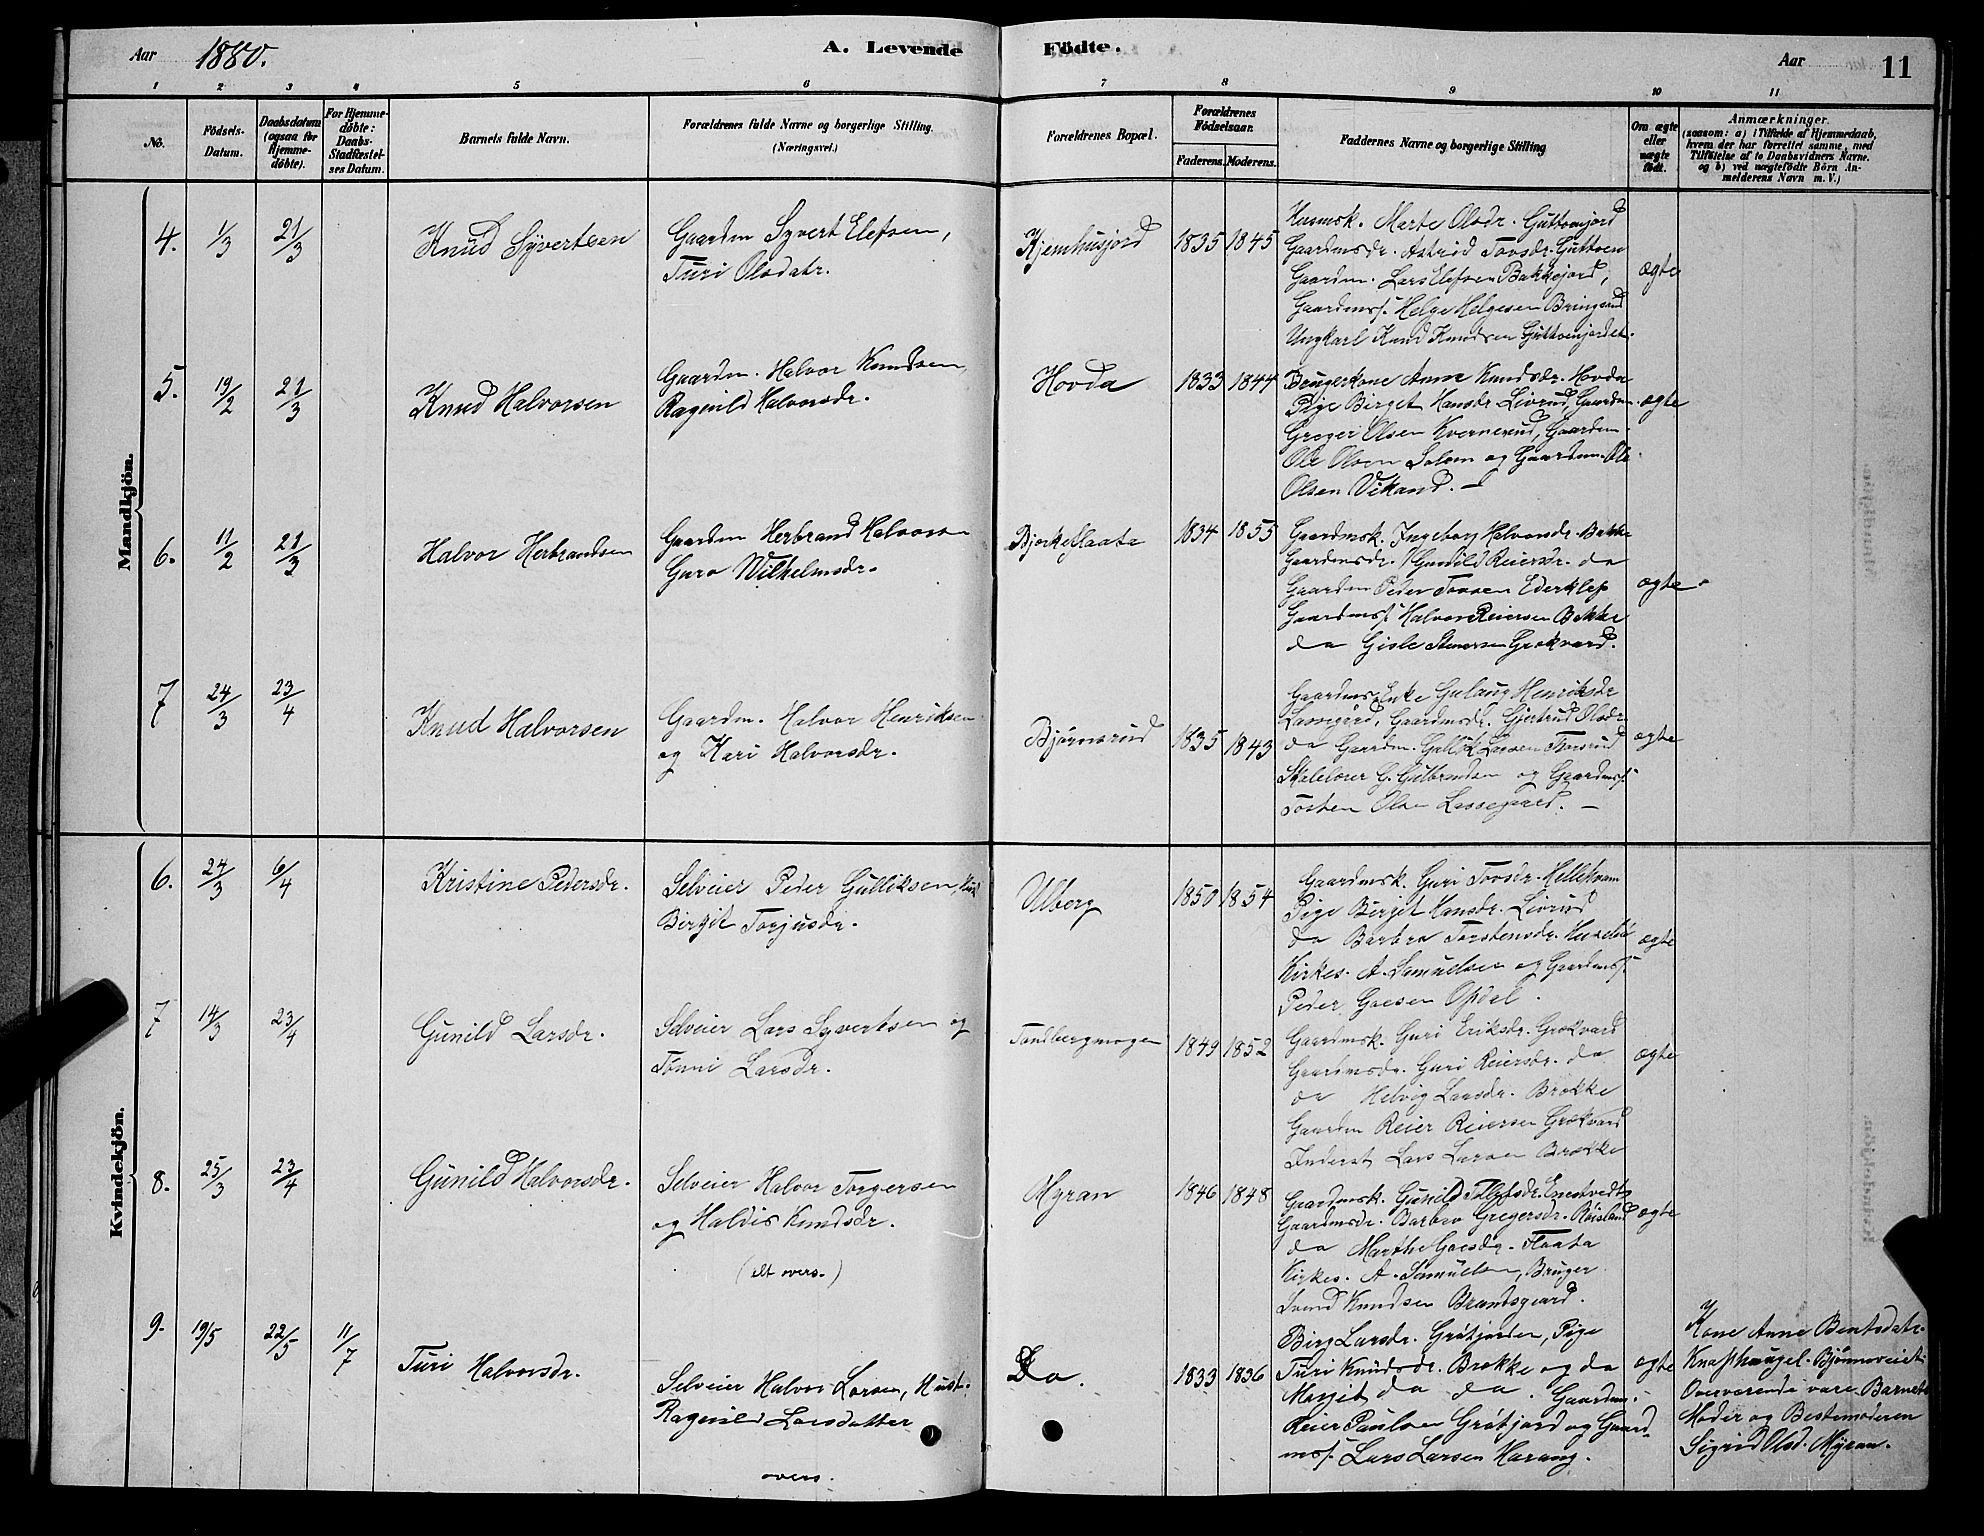 Aar 1880. A. Levende Fødte. Aar 11
1 2 3 4 5 6 7 8 9 10 11
No.
Födsels-
Datum.
Daabsdatum
(ogsaa for
Hjemme-
döbte).
For Hjemme-
döbte:
Daabs-
Stadfæstel-
ses Datum.
Barnets fulde Navn.
Forældrenes fulde Navne og borgerlige Stilling.
(Næringsvei.)
Forældrenes Bopæl.
Forældrenes
Födselsaar.
Faderens. Moderens.
Faddernes Navne og borgerlige Stilling
Om ægte
eller
uægte
födt.
Anmærkninger.
(saasom: a) i Tilfælde af Hjemmedaab,
hvem der har forrettet samme, med
Tilföielse af to Daabsvidners Navne.
og b) ved uægtefödte Börn An-
melderens Navn m. V.)
Mandkjön.
4. 1/3 21/3 Knud Syvertsen
Gaardm Syvert Elefsen,
Turi Olsdatr.
Kjemhusjord 1835 1845
Husmsk. Marte Olsdr. Guttormjord
Gaardmsdr. Astrid Tovsdr. Guttoen
Gaardm. Lars Elefsen Bakkejord,
Gaardmss. Helge Helgesen Bringsand
Ungkarl Knud Knudsen Guttoenjordet.
ægte
5. 19/2 21/3 Knud Halvorsen
Gaardm. Halvor Knudsen,
Ragnild Halvorsdr.
Hovda 1833 1844
Brugerkone Anne Knudsdr. Hovda
Pige Birget Hansdr. Livrud, Gaardm.
Greger Olsen Kvernerud, Gaardm.
Ole Olsen Solem og Gaardm. Ole
Olsen Vikand. —
ægte
6. 11/2 21/3 Halvor Herbrandsen
Gaardm Herbrand Halvorsen
Guro Wilhelmsdr.
Bjorkeflaata 1834 1855
Gaardmsk. Ingeborg Halvorsdr. Bakke
Gaardmsdr. Gunild Reiersdr. do
Gaardm Peder Tovsen Ederklep
Gaardmss. Halvor Reiersen Bakke
do Gisle Stenersen Grøkvard.
ægte
7 24/3 23/4 Knud Halvorsen
Gaardm. Halvor Henriksen
og Kari Halvorsdr.
Bjørnsrud 1835 1843
Gaardms. Enke Gulaug Henriksdr
Lassegard, Gaardmsdr. Gjertrud Olsdr.
do Gaardm. Gullik Larsen Torsrud
Skolelærer G. Gulbrandsen og Gaardmss.
Tosten Olsen Lassegaard. —
ægte
Kvindekjön.
6. 24/3 6/4 Kristine Pedersdr.
Selveier Peder Gulliksen,
Birgit Torjusdr.
Ulberg 1850 1854
Gaardmsk. Guri Tovsdr. Hellekvam
Pige Birjet Hansdr. Livrud
do Barbra Torstensdr.
Kirkes. A. Samuelsen og Gaardmss.
Peder Goesen Opdal.
ægte
7 14/3 23/4 Gunild Larsdr.
Selveier Lars Syvertsen og
Tonni Larsdr.
Tandbergmogen 1849 1852
Gaardmsk. Guri Eriksdr. Grøkvard
Gaardmsdr. Guri Reiersdr. do
do Helvig Larsdr. Brøkke
Gaardm Reier Reiersen Grøkvard
Inderst Lars Larsen Brøkke
ægte
8. 25/3 23/4 Gunild Halvorsdr.
Selveier Halvor Torgersen
og Haldis Knudsdr.
(elt overs.)
Myran 1846 1848
Gaardmsk. Gunild Tollefsdr. Enestvedt
Gaardmsdr. Barbro Gregersdr. Røisland
do Marthe Goesdr. Flaata
Kirkes. A. Samuelsen, Bruger
Svend Knudsen Brandsgaard.
ægte
9. 19/5 22/5 11/7 Turi Halvorsdr.
Selveier Halvor Larsen, Hust.
Ragnild Larsdatter
overs.
Do. 1833 1836
Birg Larsdr. Grøtjorden, Pige
Turi Knudsdr. Brøkke og do
Margit do do. Gaardm.
Reier Paulsen Grøtjord og Gaard
mss. Lars Larsen Harang.
ægte
Kone Anne Bentsdatr.
Knaphaugel. Bjønnoveiet
Overværende vare Barnets
Moder og Bestemoderen
Sigrid Olsd. Myran.